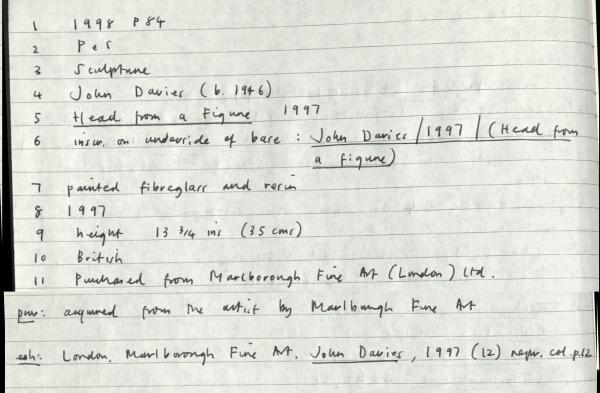 1 1998 P84
2 PeS
3 Sculpture
4 John Davies (b. 1946)
5 Head from a Figure 1997
6 inscr. on underside of base : John Davies / 1997 / (Head from
a figure)
7 painted fibreglass and resin
8 1997
9 height 13 3/4 ins (35 cms)
10 British
11 Purchased from Marlborough Fine Art (London) Ltd.
prov: acquired from the artist by Marlborough Fine Art
exh: London, Marlborough Fine Art, John Davies, 1997 (12) repr. col. p.12